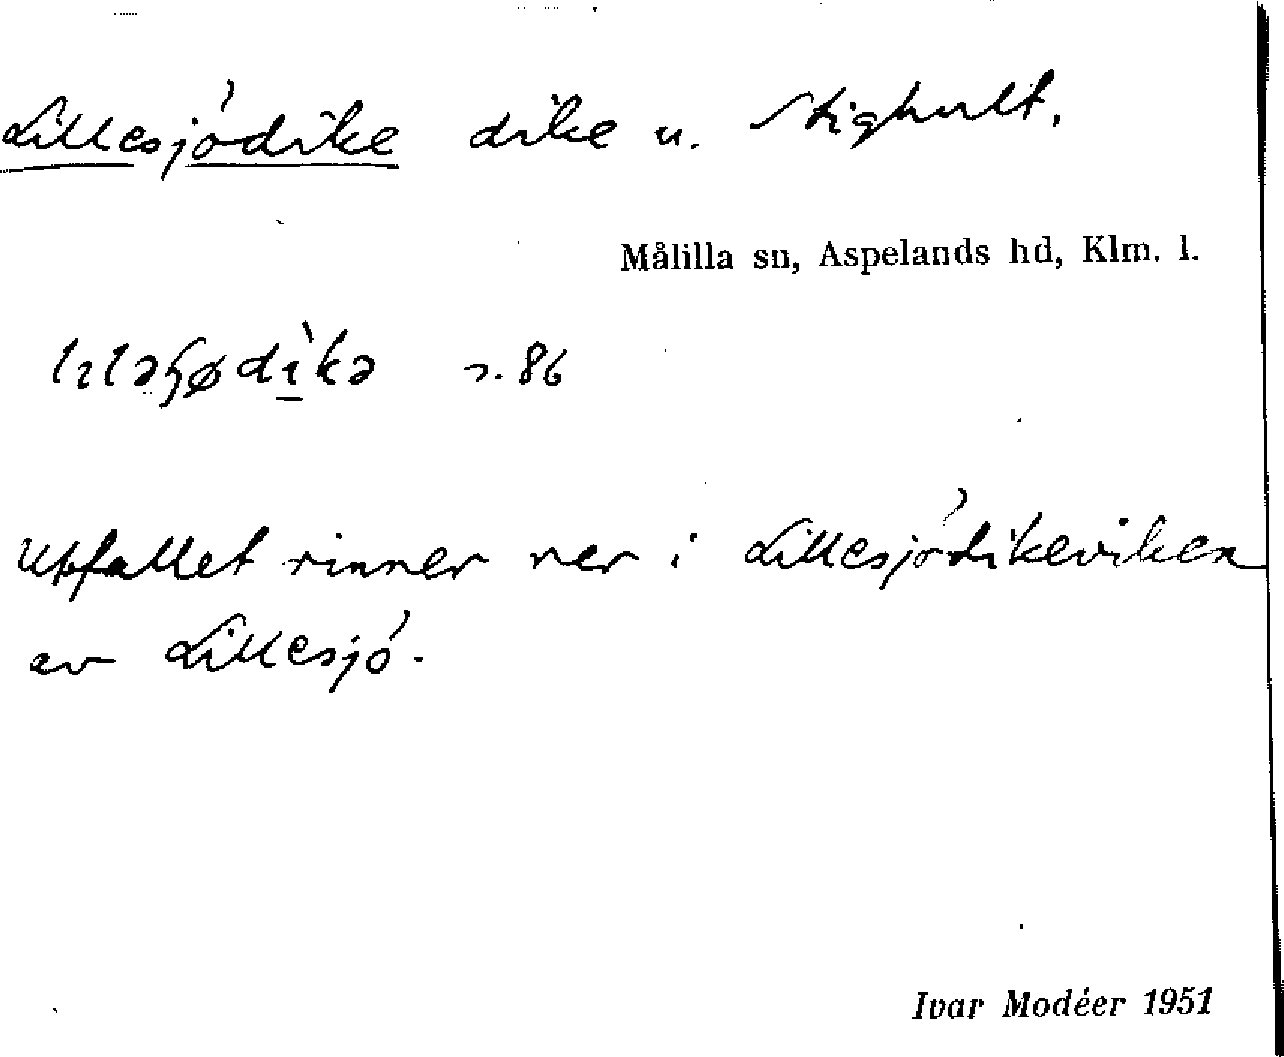 Lillesjödike dike u. Stighult.
Målilla sn, Aspelands hd, Klm. l.
s. 86
Utfallet rinner ner i Lillesjödikeviken
av Lillesjö.
Ivar Modéer 1951